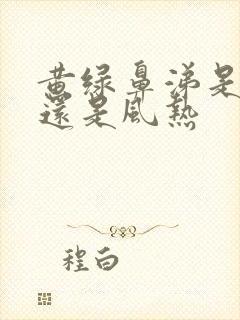 黄绿鼻涕是
還是風熱
程白